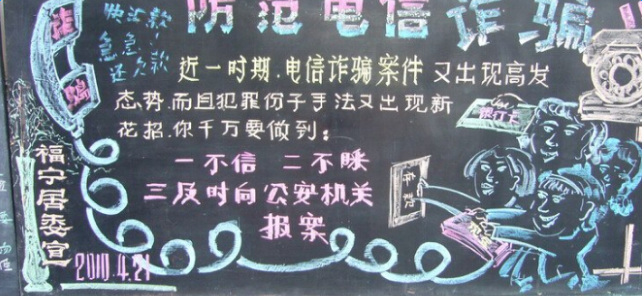 防范电信诈骗
诈骗
快汇款
急急款
还欠款
近一时期.电信诈骗案件又出现高发
态势.而且犯罪份子手法又出现新
花招.你千万要做到：
一不信 二不睬
三及时向公安机关
报案
福宁居委宣
2010.4.21
银行卡